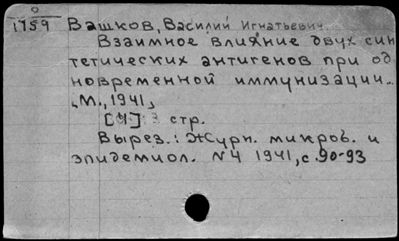 0
1759 Вашков, Василий Игнатьевич
Взаимное влияние двух син
тетических антигенов при од
новременной иммунизации..
М., 1941,
[4] стр.
Вырез.: Журн. микров. и
эпидемиол. N4 1941, с. 90-93